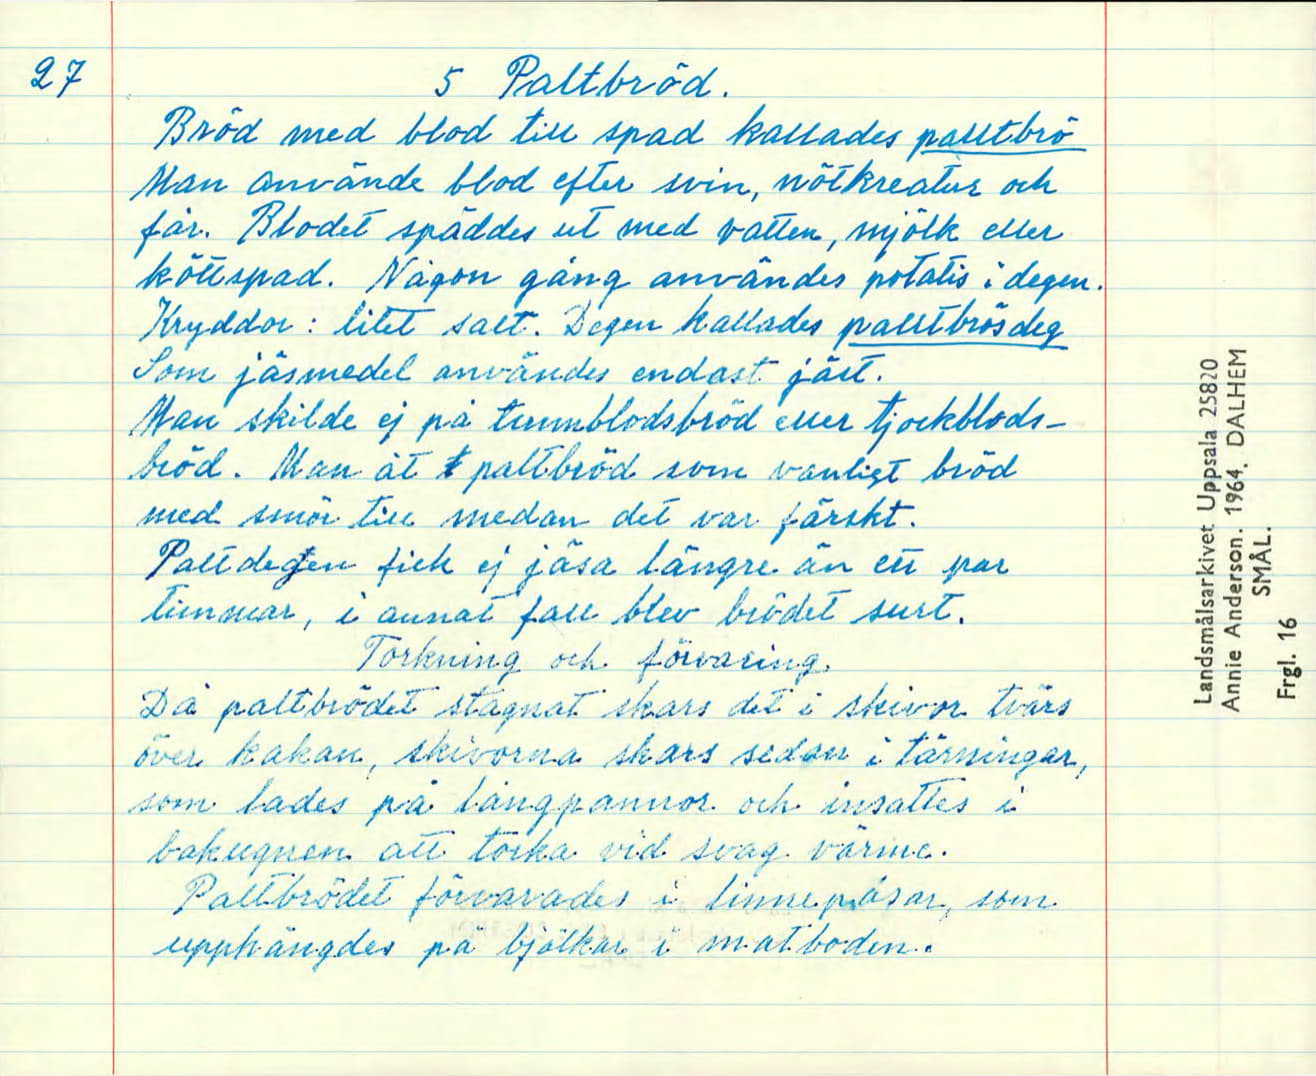 27
5 Paltbröd.
Bröd med blod till spad kallades palltbrö
Man använde blod efter svin, nötkreatur och
får. Blodet späddes ut med vatten, mjölk eller
köttspad. Någon gång användes potatis i degen.
Kryddor: litet salt. Degen kallades palltbrösdeg
Som jäsmedel användes endast jäst.
Man skilde ej på tunnblodsbröd eller tjockblods-
bröd. Man åt paltbröd som vanligt bröd
med smör till medan det var färskt.
Paltdegen fick ej jäsa längre än ett par
timmar, i annat fall blev brödet surt.
Torkning och förvaring.
Då paltbrödet stagnat skars det i skivor tvärs
över kakan, skivorna skars sedan i tärningar,
som lades på långpannor och insattes i
bakugnen att torka vid svag värme.
Paltbrödet förvarades i linnepåsar, som
upphängdes på bjälkar i matboden.
Landsmålsarkivet Uppsala 25820
Annie Anderson. 1964. DALHEM
SMÅL.
Frgl. 16